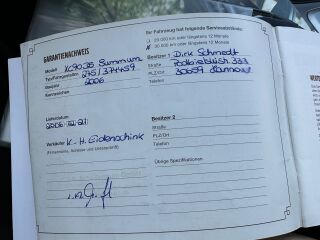 GARANTIENACHWEIS
Modell XC90 D5 Summum
Typ/Fahrgestellnr. 275/374459
Baujahr 2006
Kennzeichen
Lieferdatum
2006-12-21
Verkäufer K-H. Eidenschink
(Firmenname, Adresse und Unterschrift)
Ihr Fahrzeug hat folgende Serviceintervalle:
20 000 km oder längstens 12 Monate
30 000 km oder längstens 12 Monate
Besitzer 1 Dirk Schmedt
Straße Podbielskistr. 333
PLZ/Ort 30659 Hannover
Telefon
Besitzer 2
Straße
PLZ/Ort
Telefon
Übrige Spezifikationen